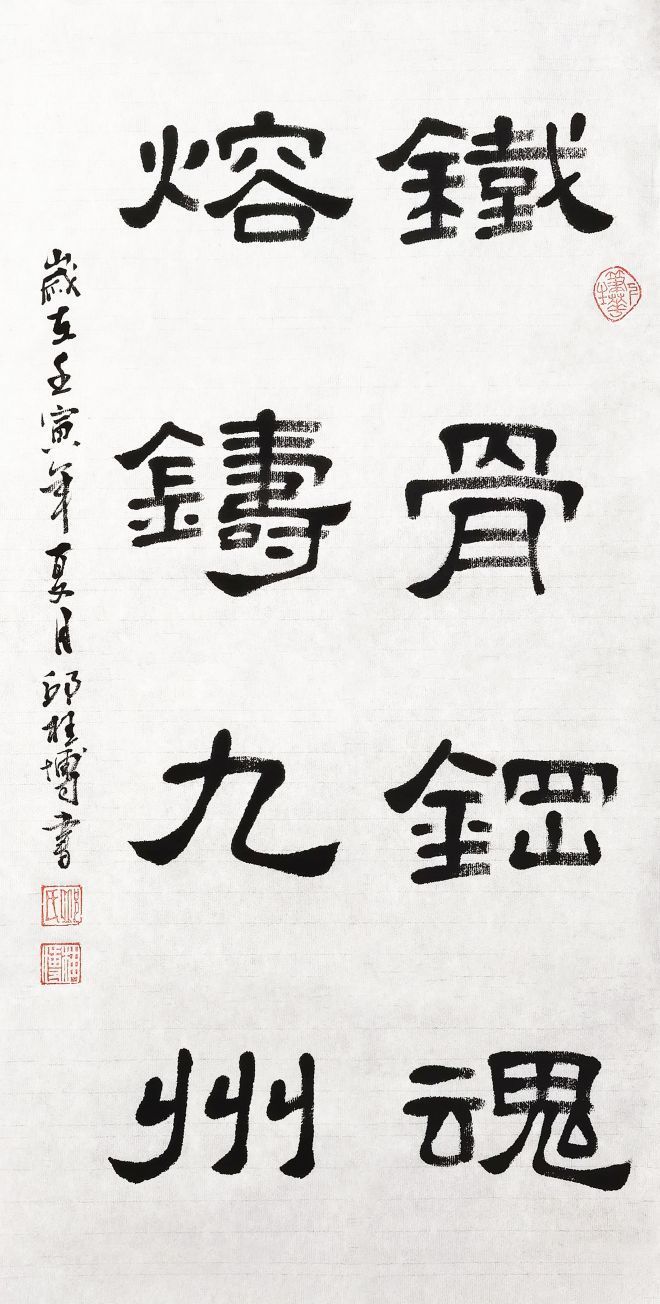 鐵骨鋼魂
熔鑄九州
歲在壬寅年夏月邱桂博書